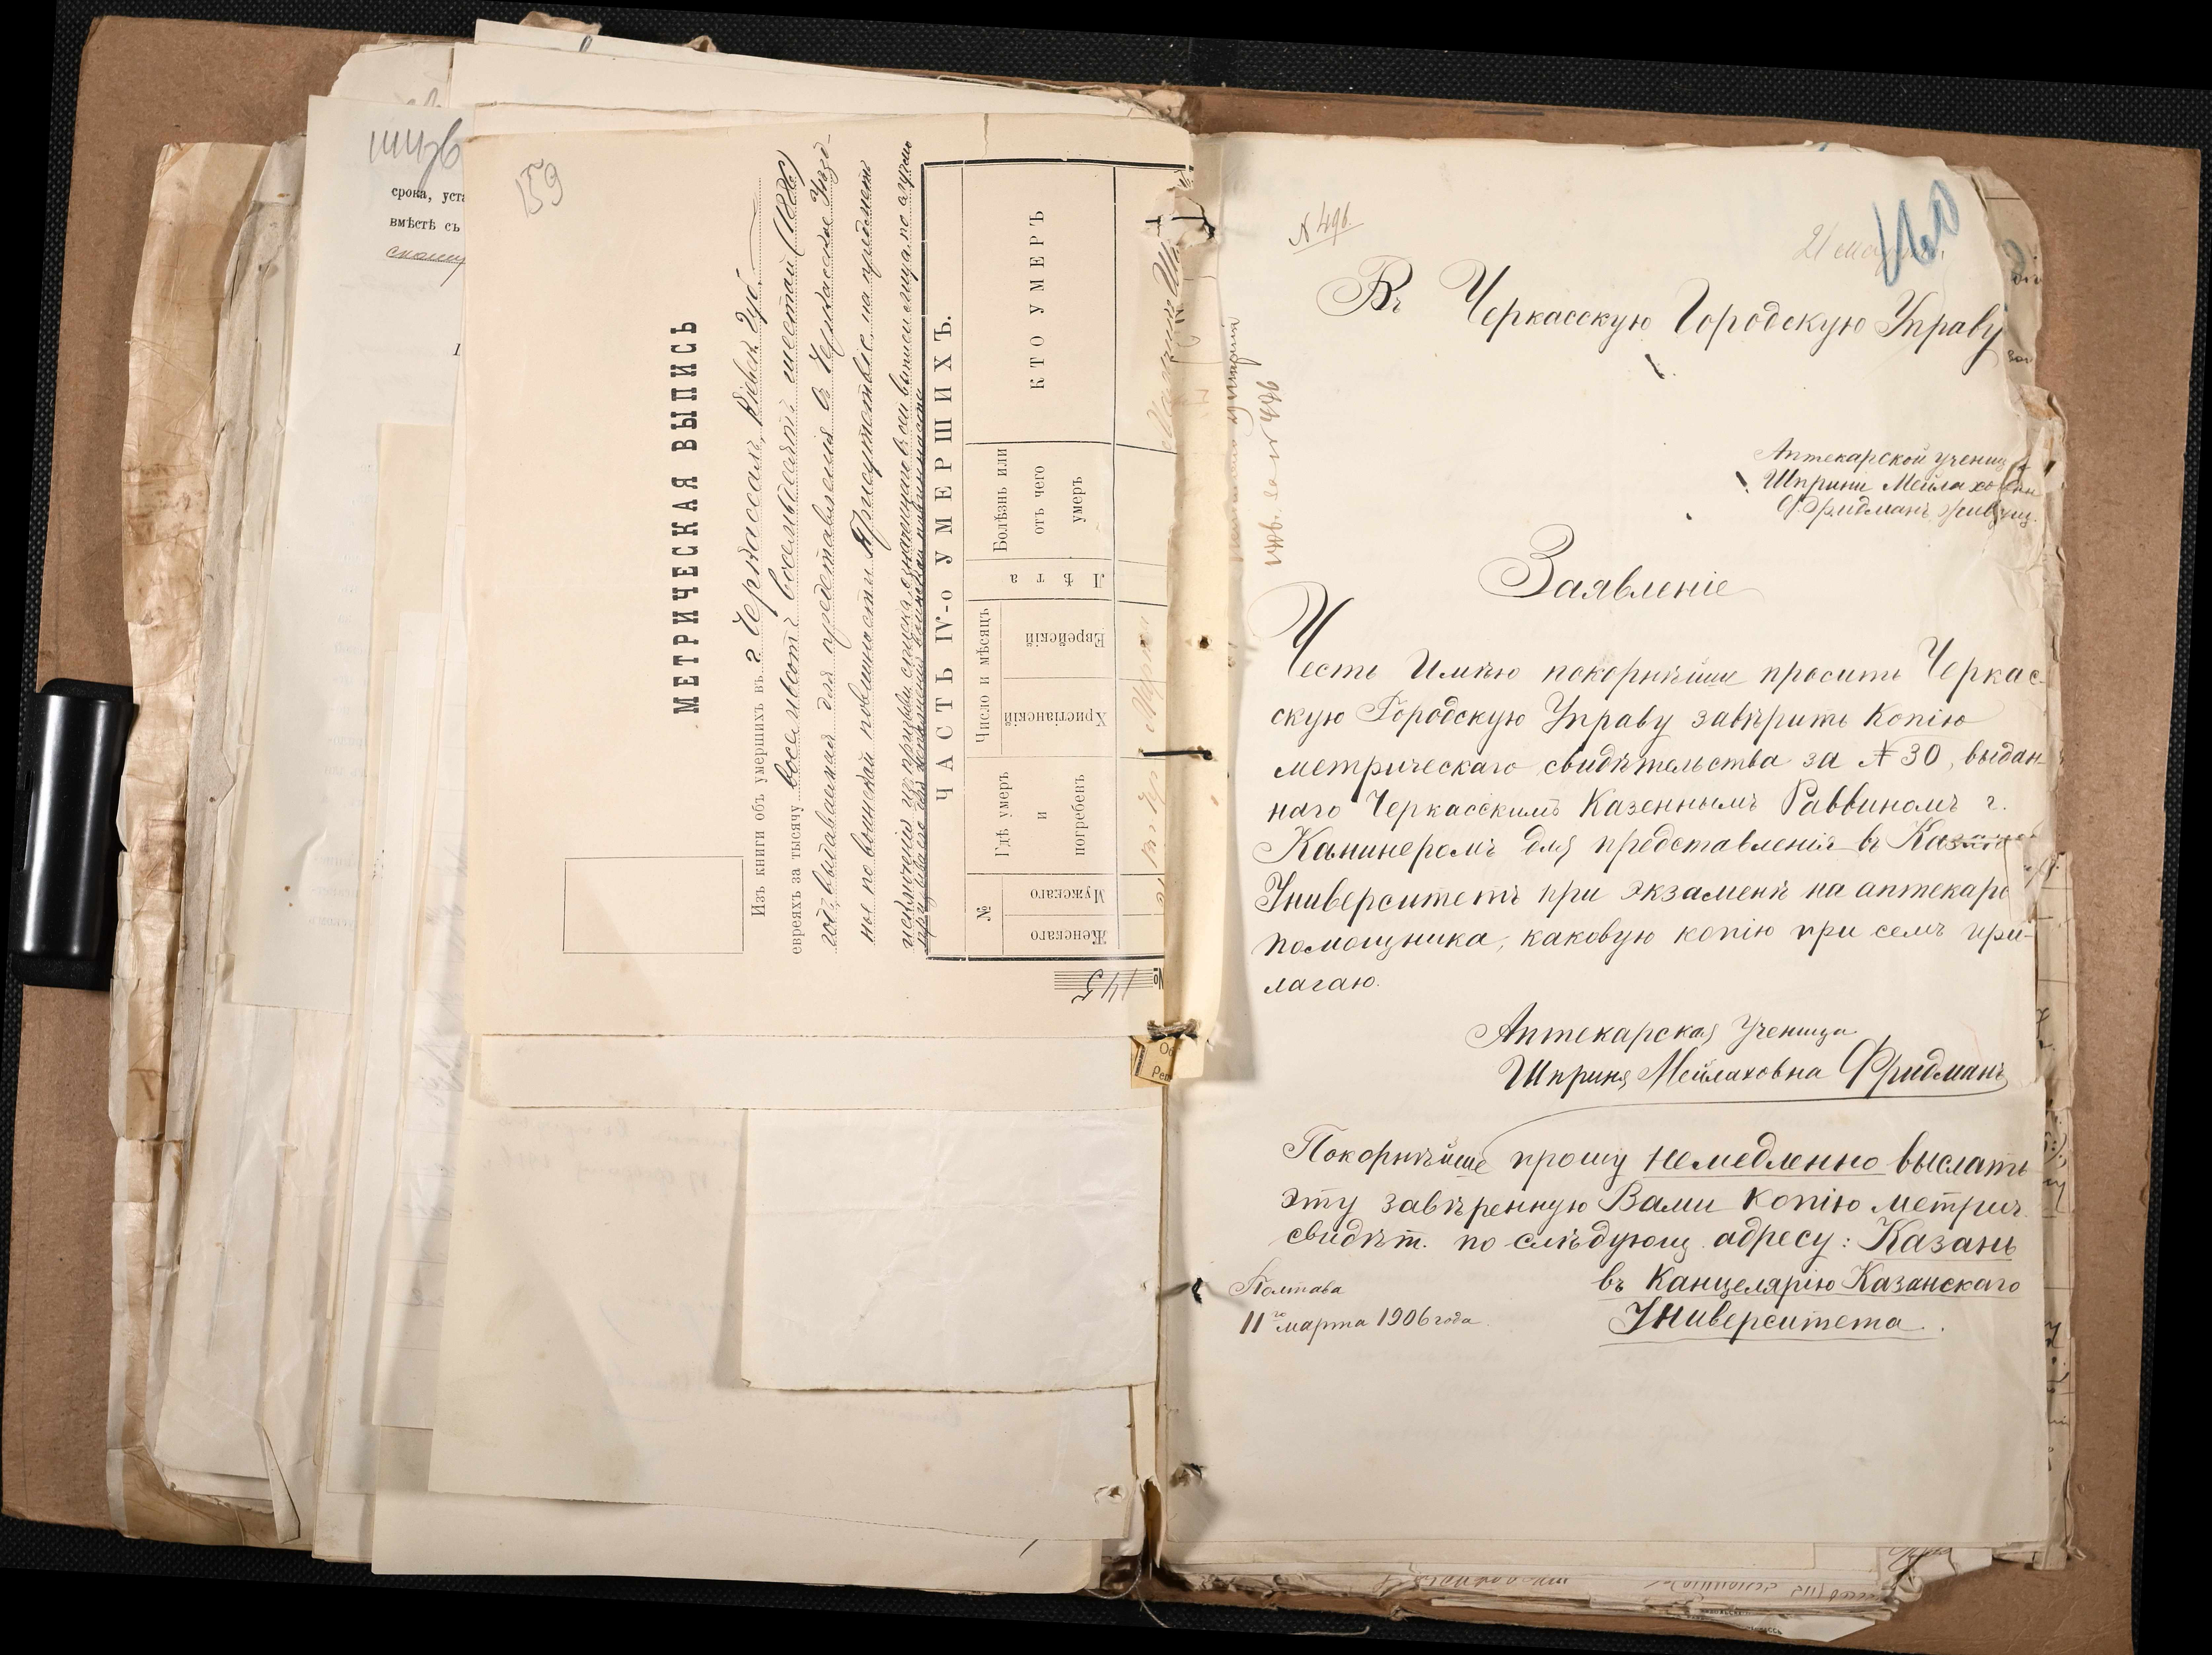 159
МЕТРИЧЕСКАЯ ВЫПИСЬ
Изъ книги объ умершихъ въ г. Черкассахъ, Кіевск. губ.
евреяхъ за тысячу восемьсотъ восемьдесятъ шестой (1886)
годъ, выдаваемая для представленія въ Черкасское Уѣзд-
ное по воинской повинности Присутствіе на предметъ
исключенія изъ призывн. списка означеннаго въ сей выписи лица, по
ЧАСТЬ IV-о УМЕРШИХЪ.
№
Женскаго
Мужскаго
Гдѣ умеръ
и
погребенъ
Число и мѣсяцъ
Христіанскій
Еврейскій
Лѣта
Болѣзнь или
отъ чего
умеръ
КТО УМЕРЪ
№ 145
срока, уст
вмѣстѣ съ
N 496
21 мар
160
Въ Черкасскую Городскую Управу
Аптекарской учениц
Шприни Мейлаховны
Фридманъ, живущ.
Заявленіе
Честь Имѣю покорнѣйше просить Черкас-
скую Городскую Управу завѣрить копію
метрическаго свидѣтельства за № 30, выдан-
наго Черкасскимъ Казеннымъ Раввиномъ г.
для представленія въ
Университетъ при экзаменѣ на аптекарс
помощника, каковую копію при семъ при-
лагаю.
Аптекарская Ученица
Шприня Мейлаховна Фридманъ
Покорнѣйше прошу немедленно выслать
эту завѣренную Вами копію метрич.
свидѣт. по слѣдующ. адресу: Казань
въ Канцелярію Казанскаго
Университета.
Полтава
11го марта 1906 года.